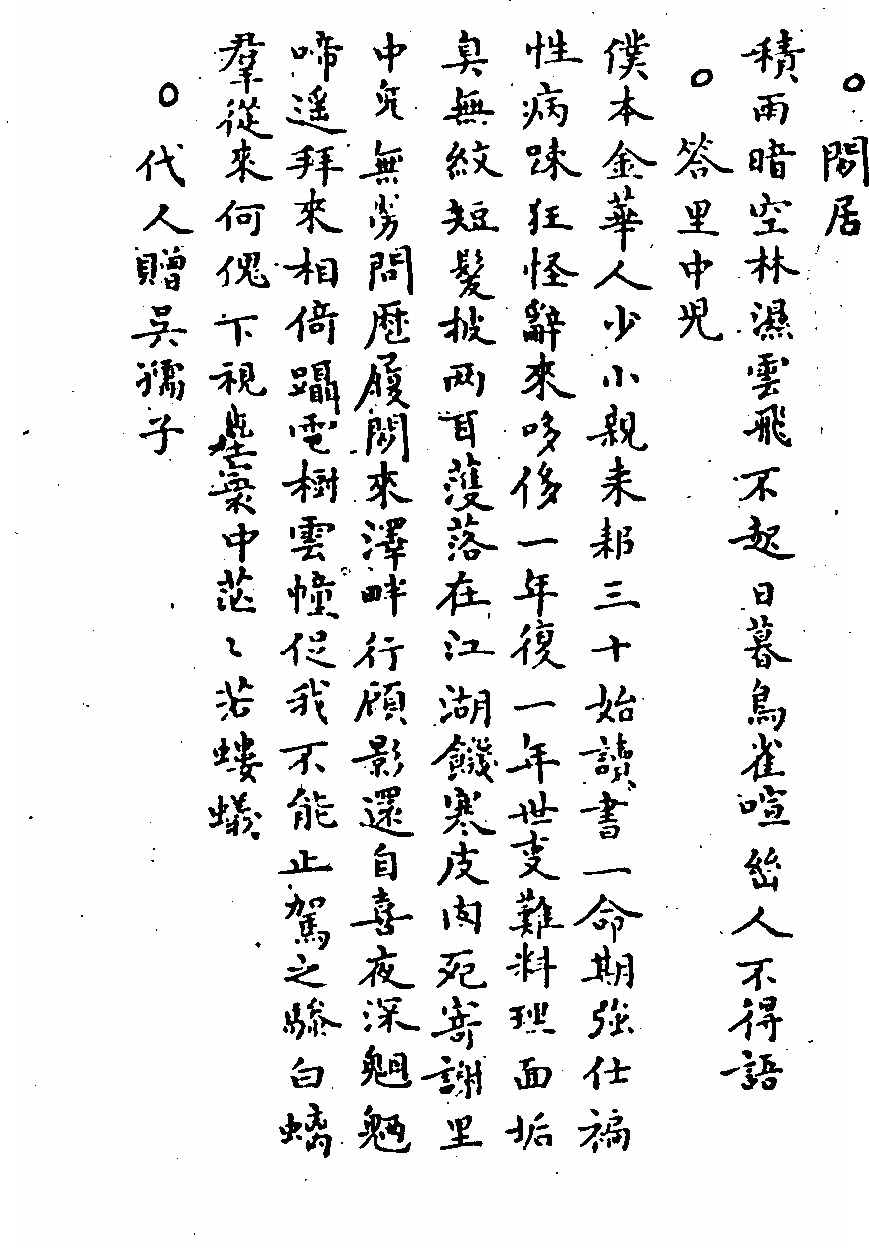 ○閒居
積雨暗空林濕雲飛不起日暮鳥雀喧幽人不得語
○答里中兒
僕本金華人少小親耒耜三十始讀書一命期強仕褊
性病踈狂怪辭來哆侈一年復一年世変難料理面垢
臭無紋短髮披两耳濩落在江湖饑寒皮肉死寄謝里
中児無勞問歷履閑來澤畔行顧影還自喜夜深魍魎
啼遥拜來相倚躡電樹雲幢促我不能止駕之驂白螭
羣從來何傀下視塵寰中茫〻茫螻蟻
○代人贈吴孺子